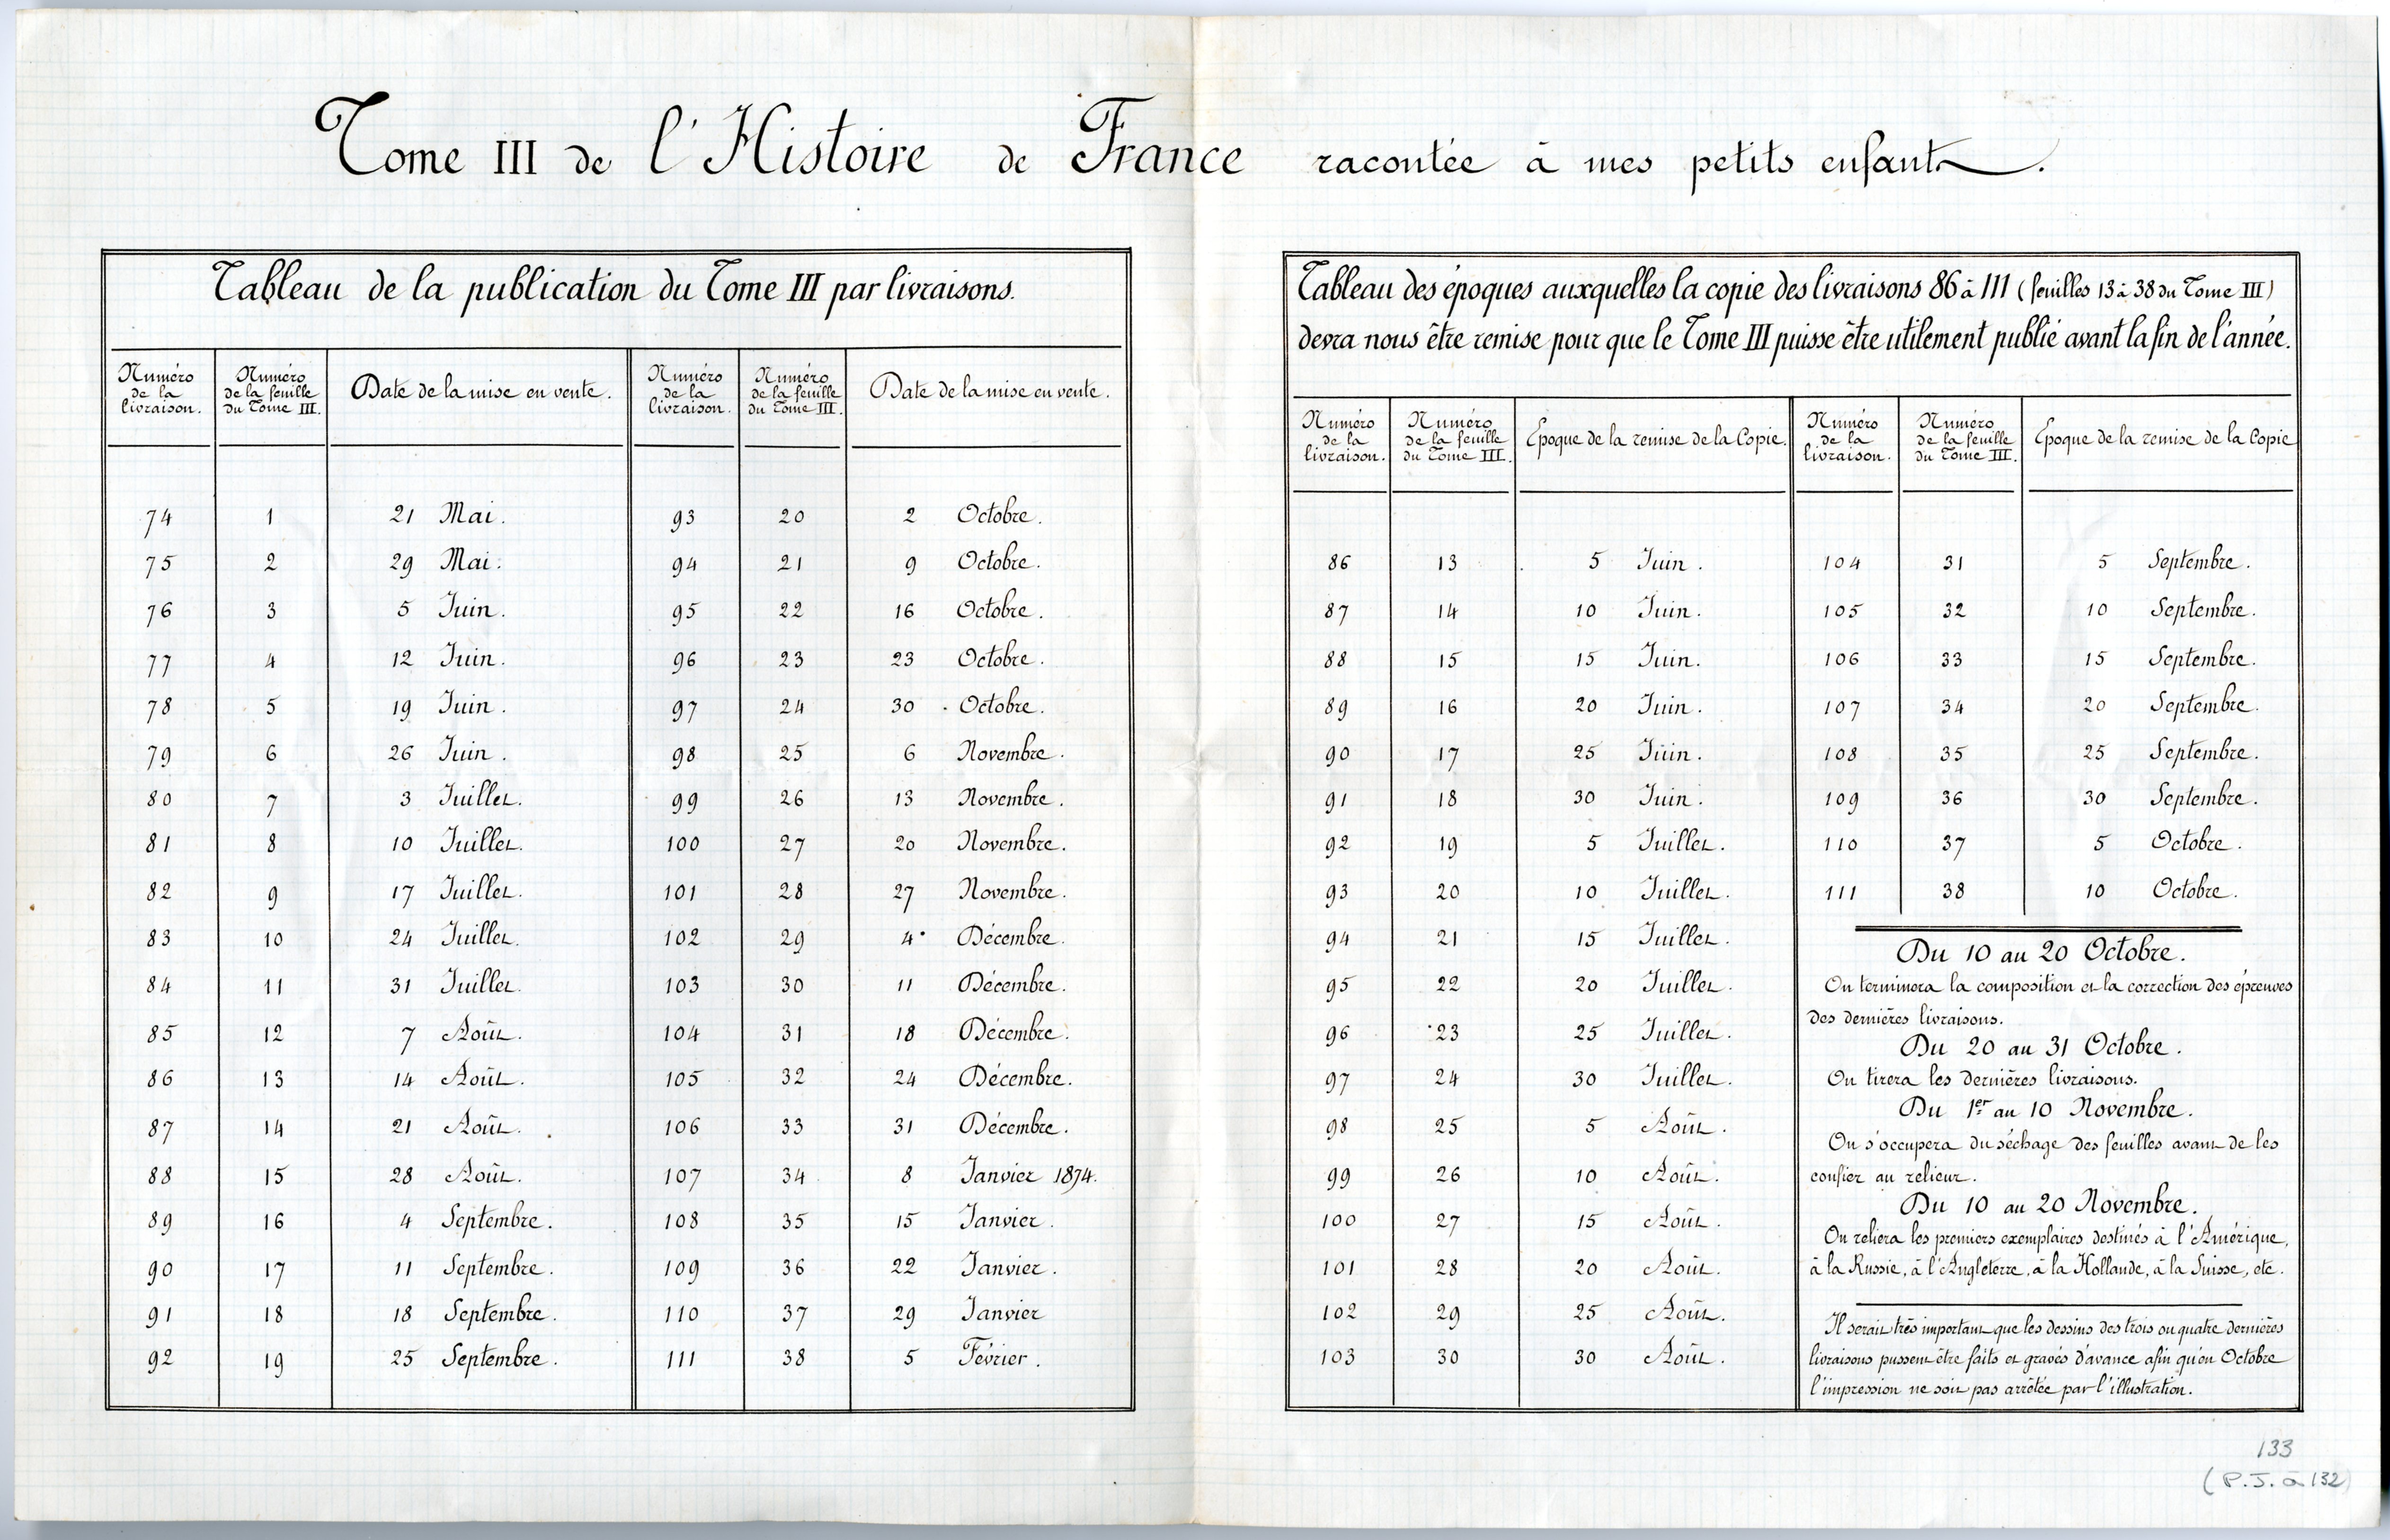 Tome III de l'Histoire de France racontée à mes petits enfants.
Tableau de la publication du Tome III par livraisons.
Numéro de la livraison. Numéro de la feuille du Tome III. Date de la mise en vente. Numéro de la livraison. Numéro de la feuille du Tome III. Date de la mise en vente.
74 1 21 Mai. 93 20 2 Octobre.
75 2 29 Mai. 94 21 9 Octobre.
76 3 5 Juin. 95 22 16 Octobre.
77 4 12 Juin. 96 23 23 Octobre.
78 5 19 Juin. 97 24 30 Octobre.
79 6 26 Juin. 98 25 6 Novembre.
80 7 3 Juillet. 99 26 13 Novembre.
81 8 10 Juillet. 100 27 20 Novembre.
82 9 17 Juillet. 101 28 27 Novembre.
83 10 24 Juillet. 102 29 4 Décembre.
84 11 31 Juillet. 103 30 11 Décembre.
85 12 7 Août. 104 31 18 Décembre.
86 13 14 Août. 105 32 24 Décembre.
87 14 21 Août. 106 33 31 Décembre.
88 15 28 Août. 107 34 8 Janvier 1874.
89 16 4 Septembre. 108 35 15 Janvier.
90 17 11 Septembre. 109 36 22 Janvier.
91 18 18 Septembre. 110 37 29 Janvier
92 19 25 Septembre. 111 38 5 Février.
Tableau des époques auxquelles la copie des livraisons 86 à 111 (feuilles 13 à 38 du Tome III)
devra nous être remise pour que le Tome III puisse être utilement publié avant la fin de l'année.
Numéro de la livraison. Numéro de la feuille du Tome III. Epoque de la remise de la Copie. Numéro de la livraison. Numéro de la feuille du Tome III. Epoque de la remise de la Copie
86 13 5 Juin. 104 31 5 Septembre.
87 14 10 Juin. 105 32 10 Septembre.
88 15 15 Juin. 106 33 15 Septembre.
89 16 20 Juin. 107 34 20 Septembre.
90 17 25 Juin. 108 35 25 Septembre.
91 18 30 Juin. 109 36 30 Septembre.
92 19 5 Juillet. 110 37 5 Octobre.
93 20 10 Juillet. 111 38 10 Octobre.
94 21 15 Juillet.
95 22 20 Juillet.
96 23 25 Juillet.
97 24 30 Juillet.
98 25 5 Août.
99 26 10 Août.
100 27 15 Août.
101 28 20 Août.
102 29 25 Août.
103 30 30 Août.
Du 10 au 20 Octobre.
On terminera la composition et la correction des épreuves
des dernières livraisons.
Du 20 au 31 Octobre.
On tirera les dernières livraisons.
Du 1er au 10 Novembre.
On s'occupera du séchage des feuilles avant de les
confier au relieur.
Du 10 au 20 Novembre.
On reliera les premiers exemplaires destinés à l'Amérique,
à la Russie, à l'Angleterre, à la Hollande, à la Suisse, etc.
Il serait très important que les dessins des trois ou quatre dernières
livraisons pussent être faits et gravés d'avance afin qu'en Octobre
l'impression ne soit pas arrêtée par l'illustration.
133
(P.J. à 132)